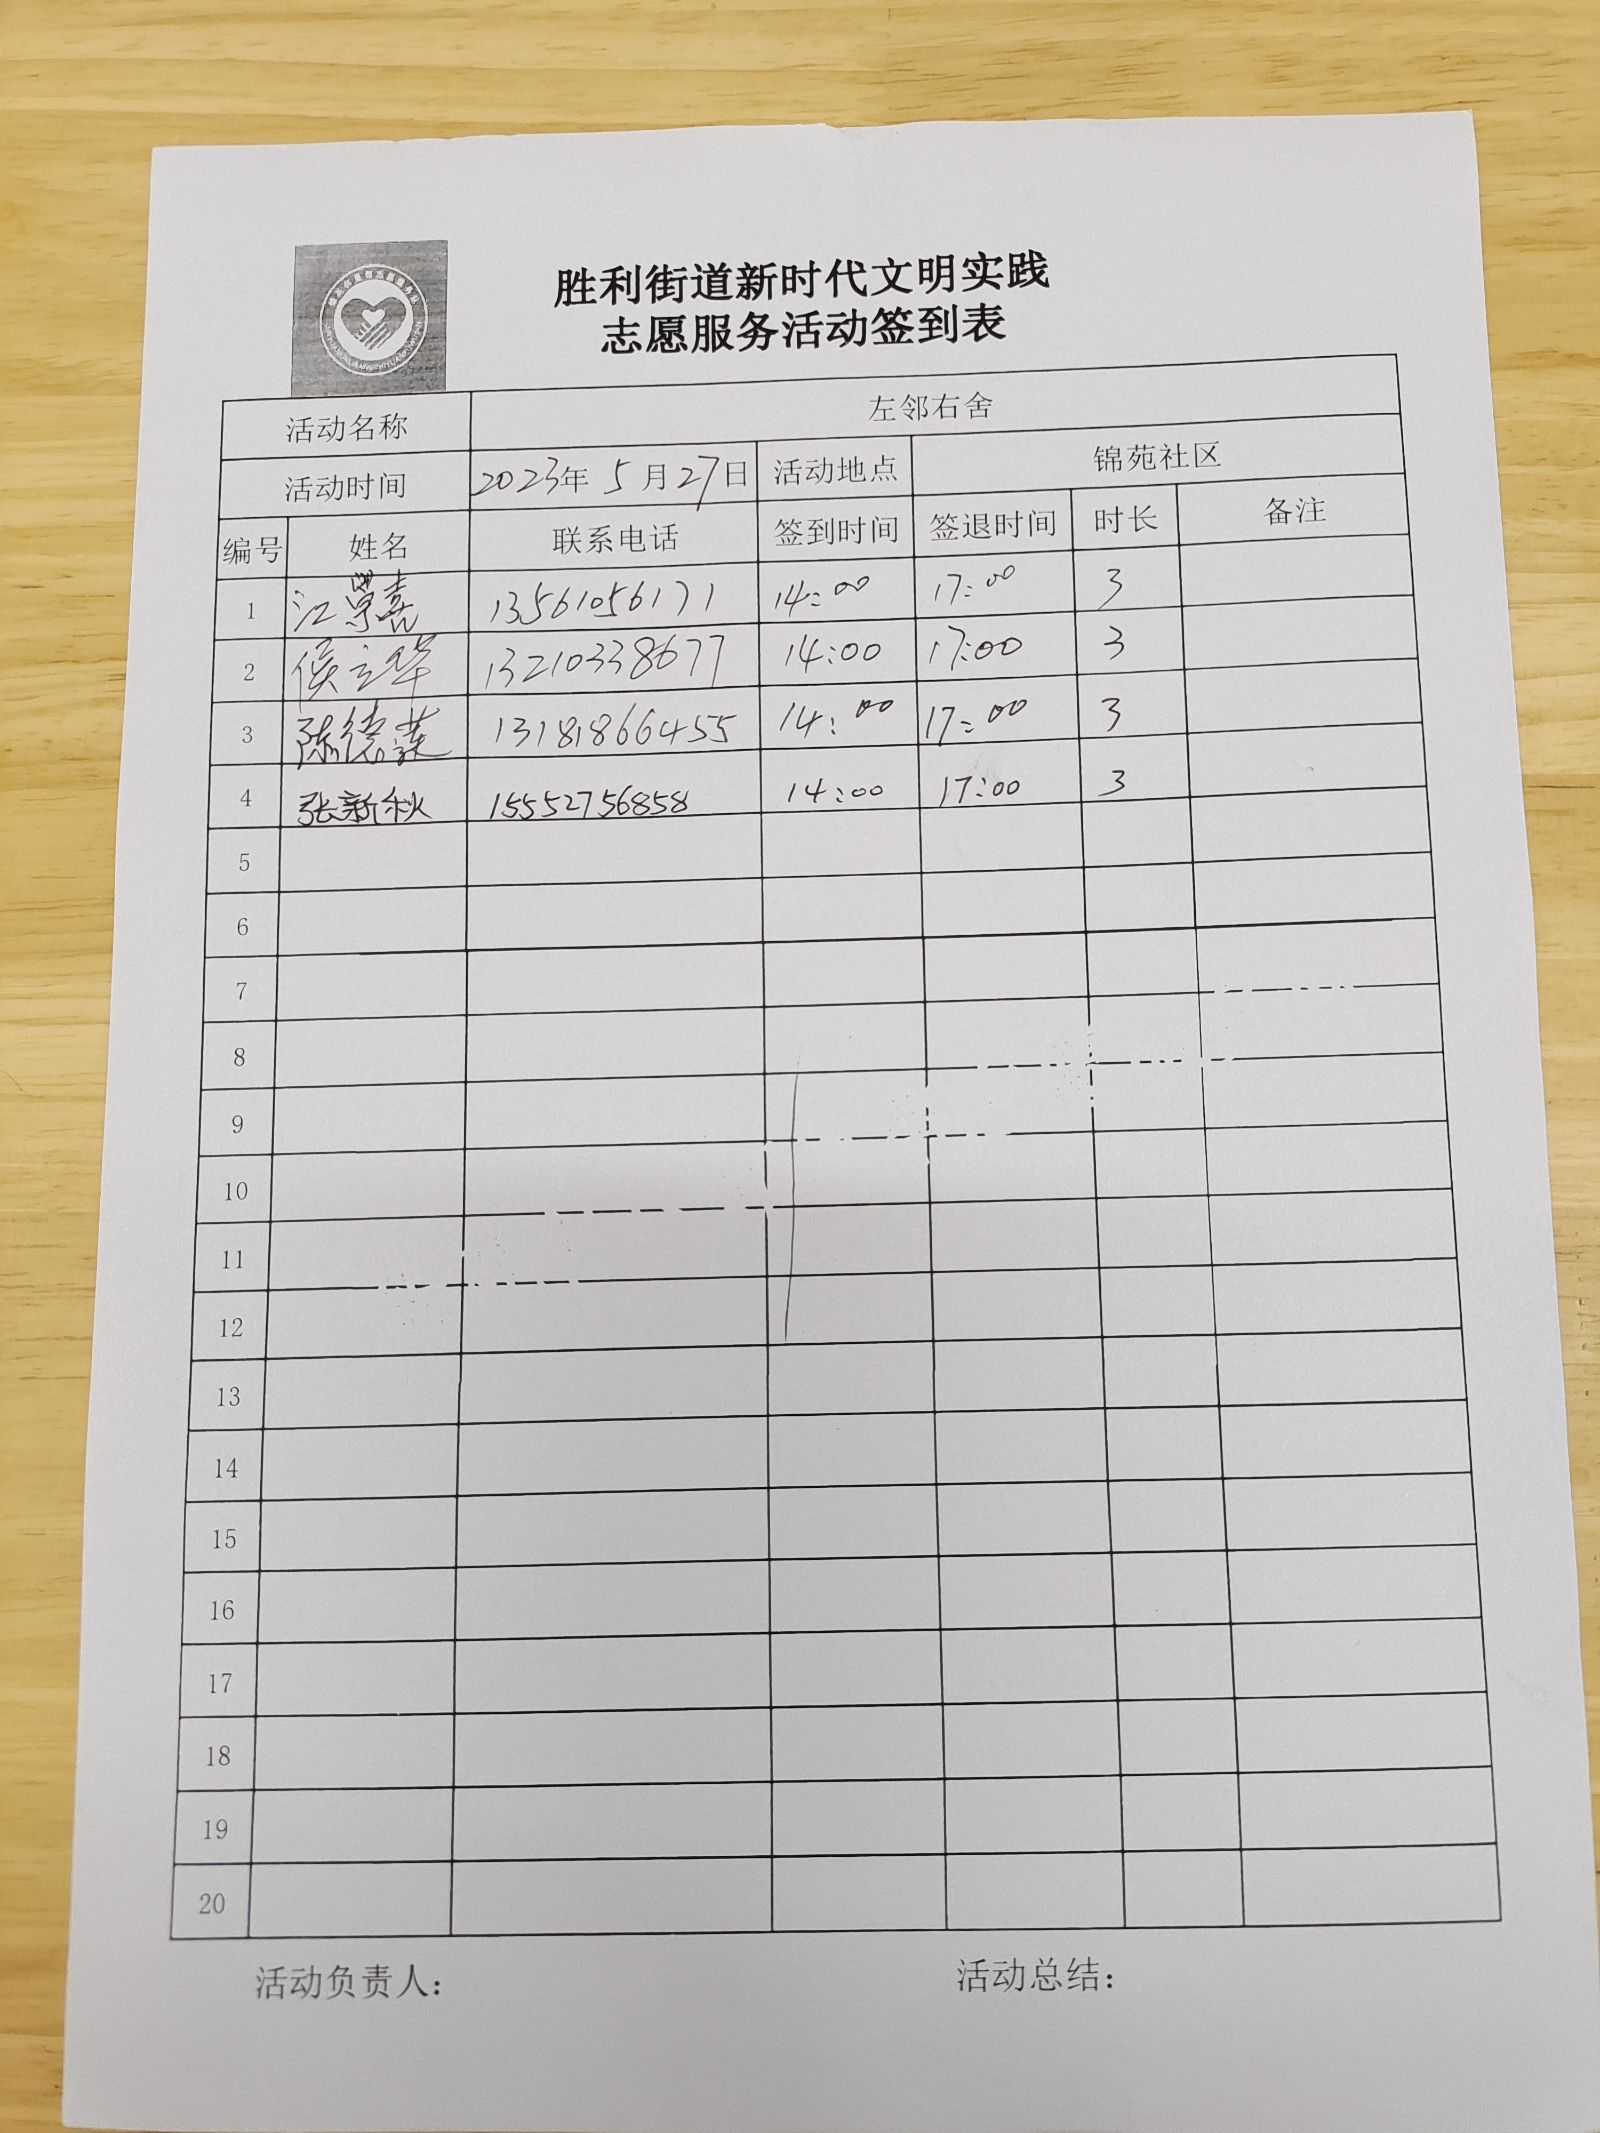 胜利街道新时代文明实践
志愿服务活动签到表
活动名称 左邻右舍
活动时间 2023年 5月27日 活动地点 锦苑社区
编号 姓名 联系电话 签到时间 签退时间 时长 备注
1 江 喜 13561056171 14:00 17:00 3
2 侯立华 13210338677 14:00 17:00 3
3 陈德 13181866455 14:00 17:00 3
4 张新秋 15552756858 14:00 17:00 3
5
6
7
8
9
10
11
12
13
14
15
16
17
18
19
20
活动负责人： 活动总结：